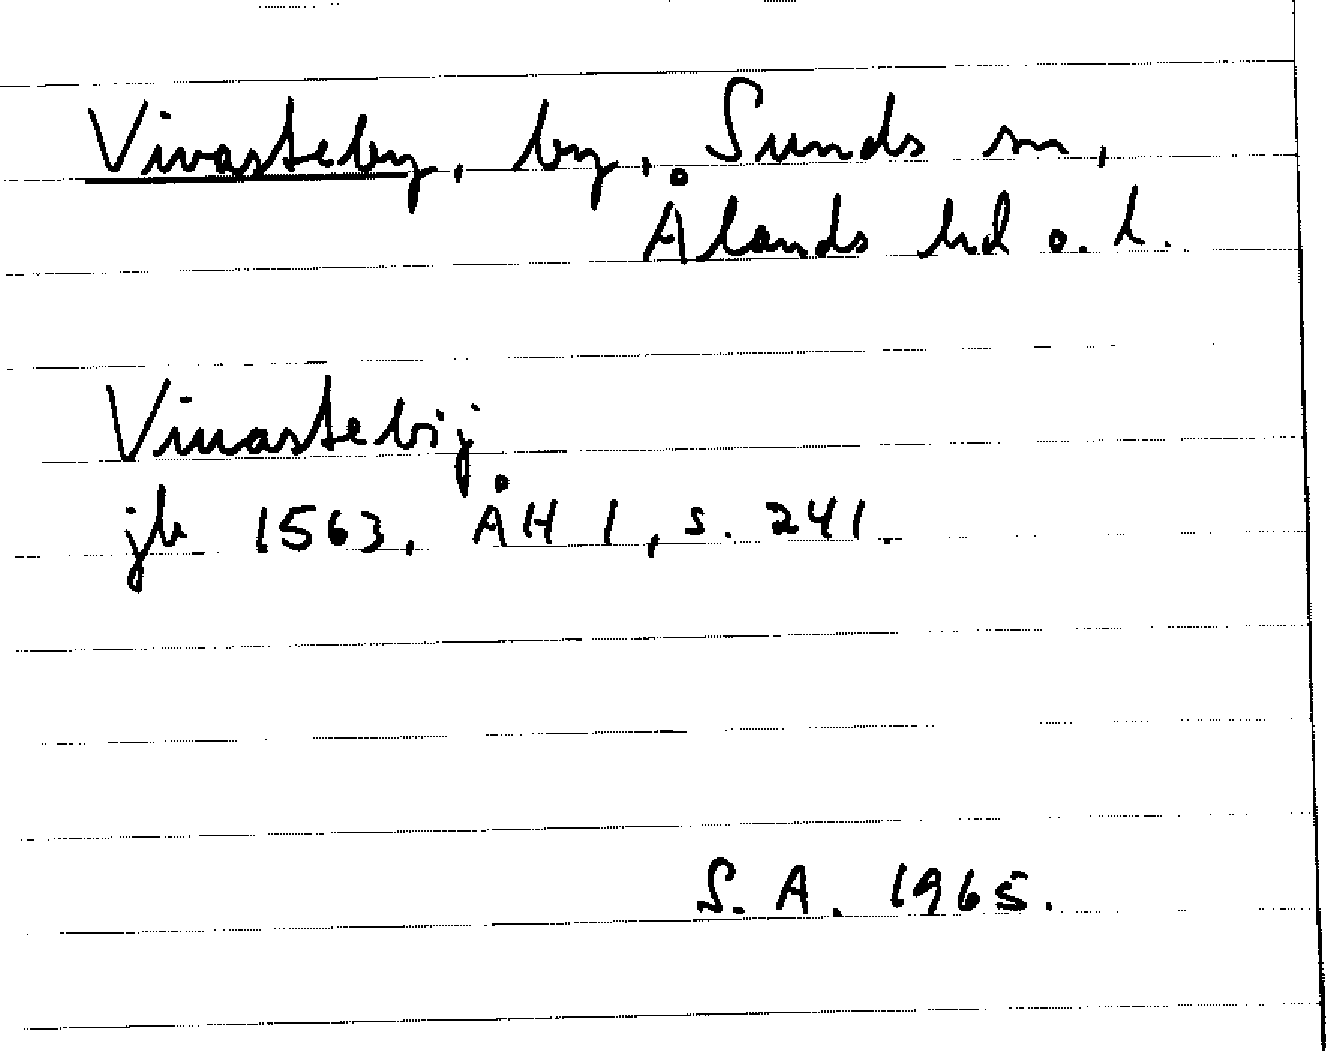 Vivasteby, by, Sunds sn,
Ålands hd o. l.
Viuastebij
jb 1563. ÅH 1, s. 241.
S. A. 1965.